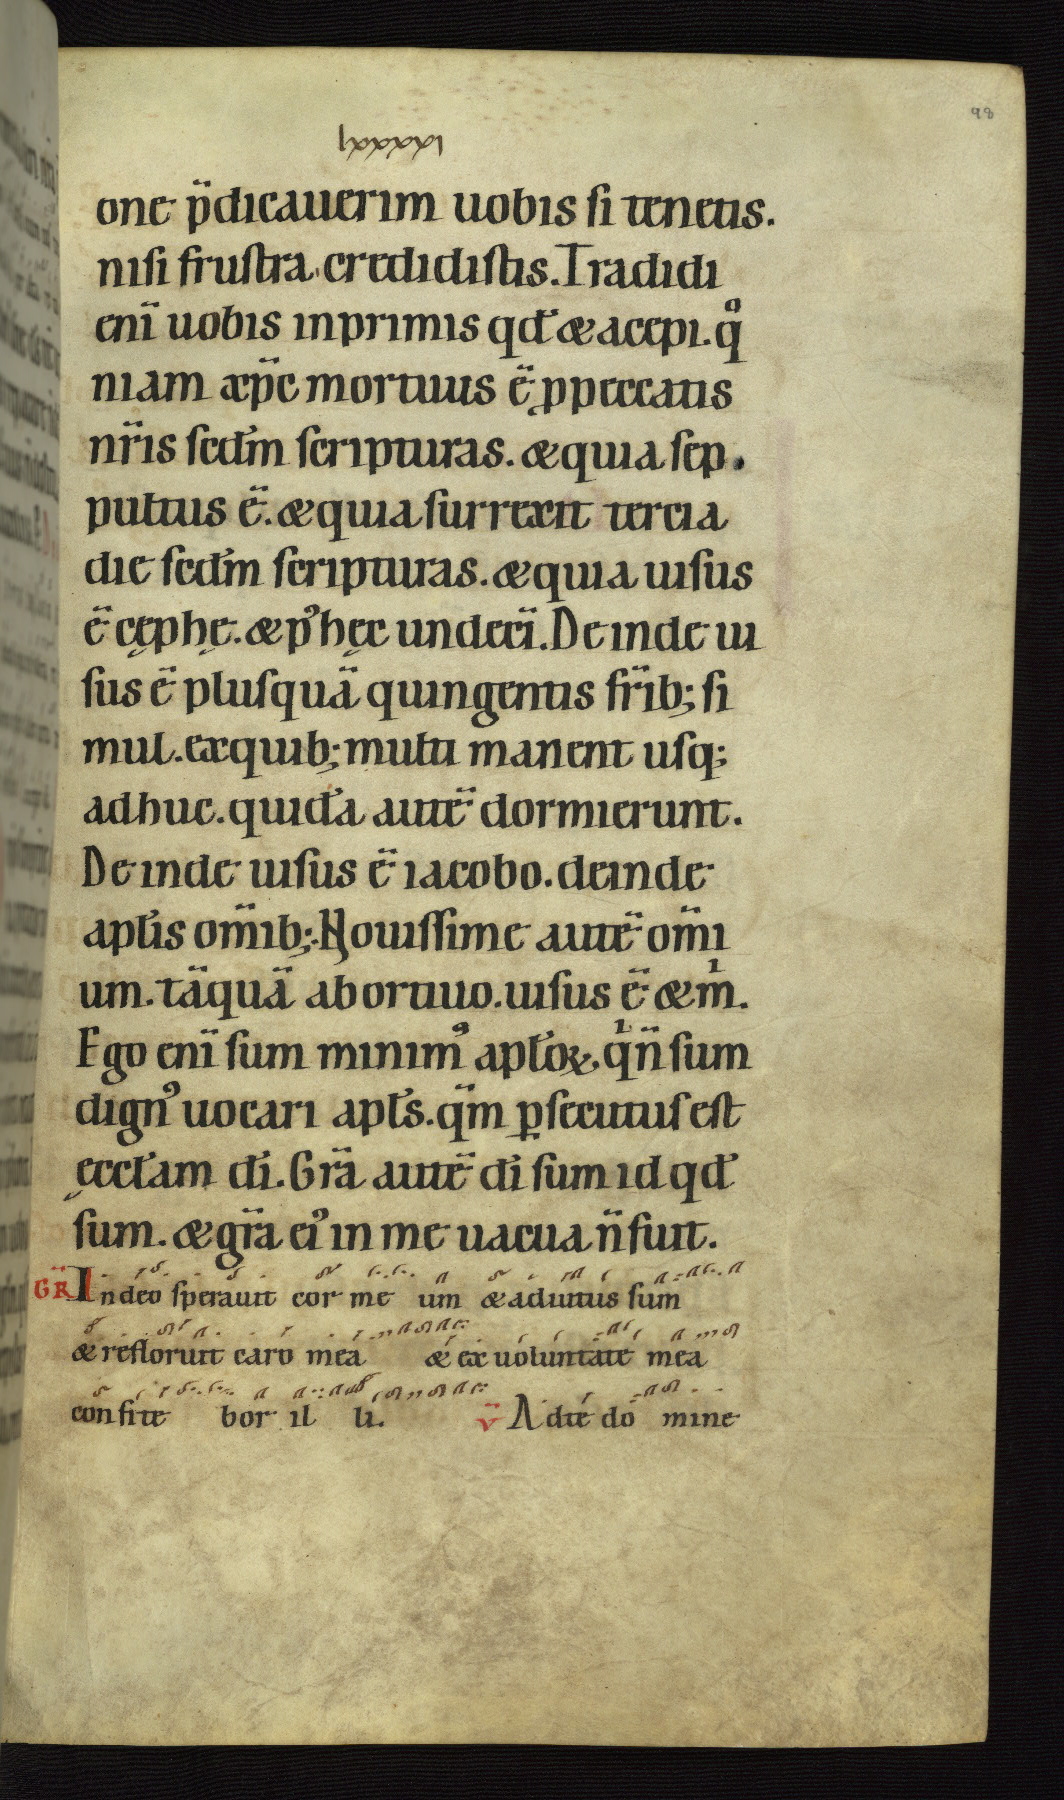 98
lxxxxi
one p̈dicauerim uobis si tenetis.
nisi frustra credidistis. Tradidi
eni̅ uobis inprimis qđ & accepi. qͦ
niam xp̅c mortuus e̅ p peccatis
nr̅is scdm̅ scripturas. & quia sep
pultus e̅. & quia surrexit tercia
die scdm̅ scripturas. & quia uisus
e̅ cęphę. & pꝰ hęc undeci̅. Deinde ui
sus e̅ plusqua̅ quingentis fr̅ib; si
mul. ex quib; multi manent usq;
adhuc. quida̅ aute̅ dormierunt.
Deinde uisus e̅ iacobo. deinde
apl̅is om̅ib; Nouissime aute̅ om̅i
um. ta̅qua̅ abortiuo. uisus e̅ & mͥ.
Ego eni̅ sum minimꝰ apl̅oꝝ. qͥ n̅ sum
dignꝰ uocari apl̅s. qm̅ ꝑsecutus est
ęccl̅am di̅. Gr̅a aute̅ di̅ sum id qđ
sum. & gr̅a eiꝰ in me uacua n̅ fuit.
GR̅ In deo sperauit cor me um & adiutus sum
& refloruit caro mea & ex uoluntate mea
confite bor il li. v̅ Ad te do mine